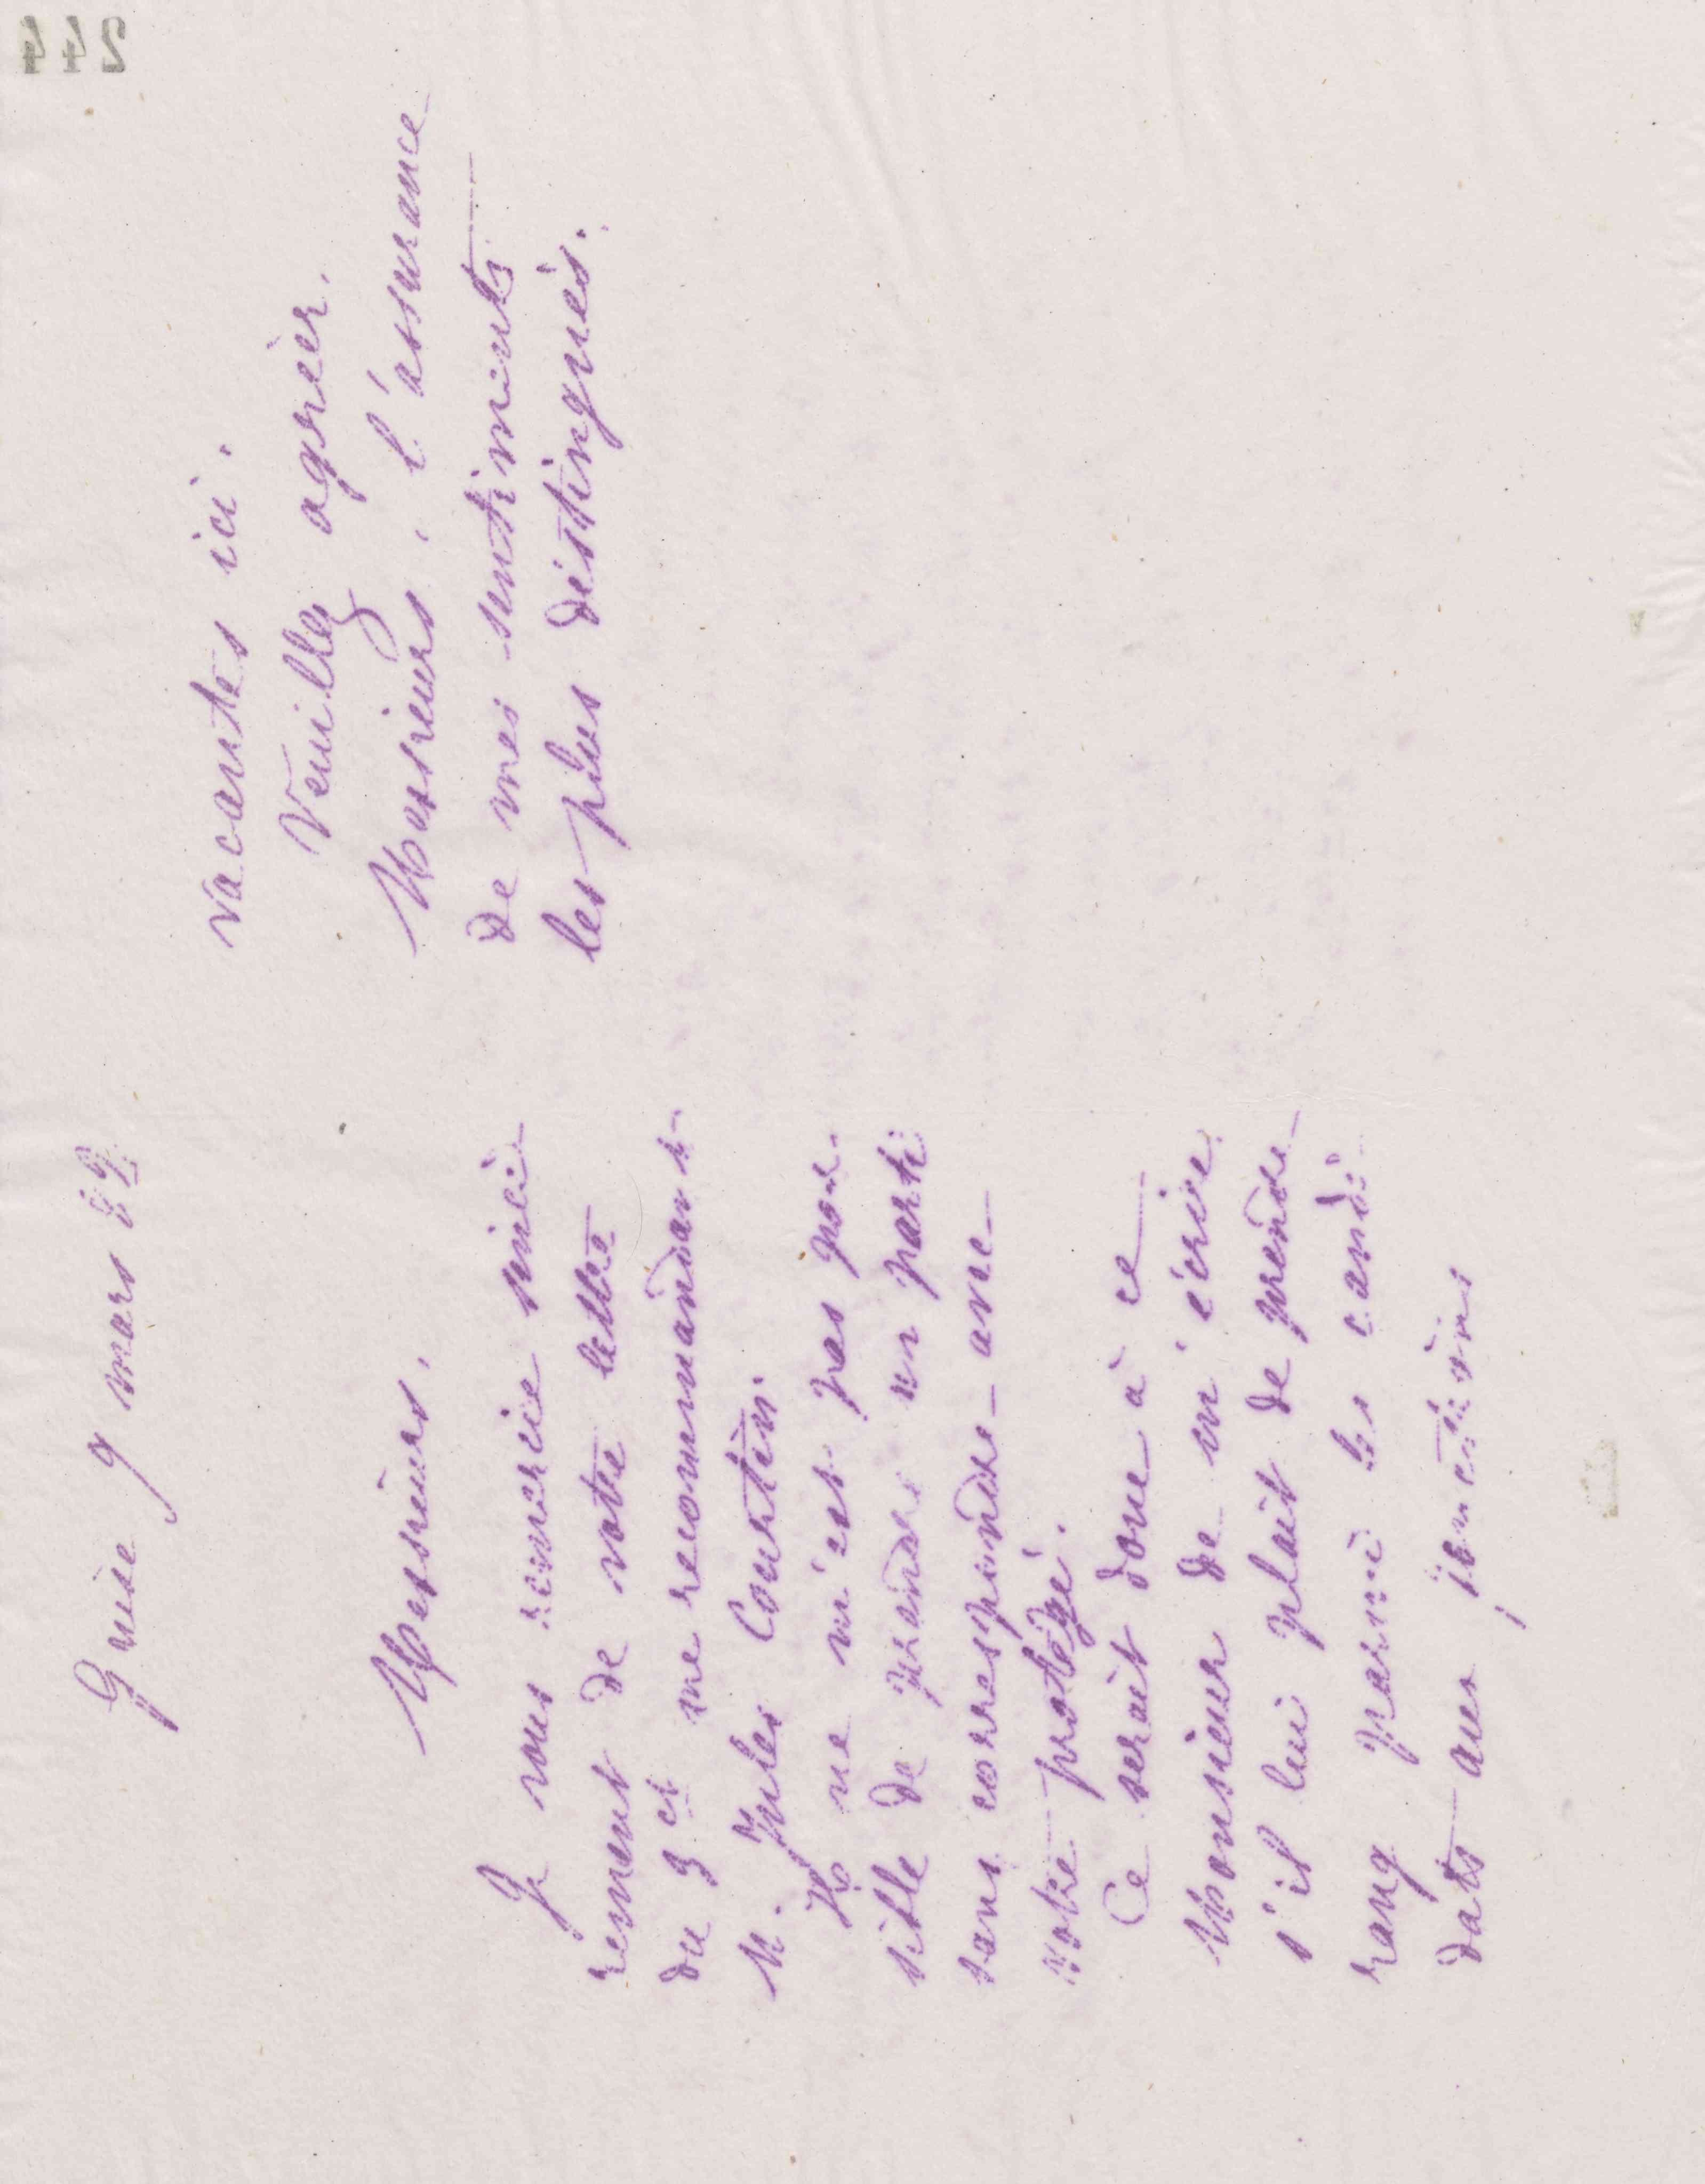 244
Guise 9 mars 89
Messieurs,
Je vous remercie sincè
rement de votre lettre
du 3 ct me recommandant
M. Jules Courtin.
Il ne m'est pas pos-
sible de prendre un parti
sans correspondre avec
votre protégé.
Ce serait donc à ce
Monsieur de m'écrire
s'il lui plait de prendre
rang parmi les candi
dats aux fonctions
vacantes ici.
Veuillez agréer,
Messieurs, l'assurance
de mes sentiments
les plus distingués.